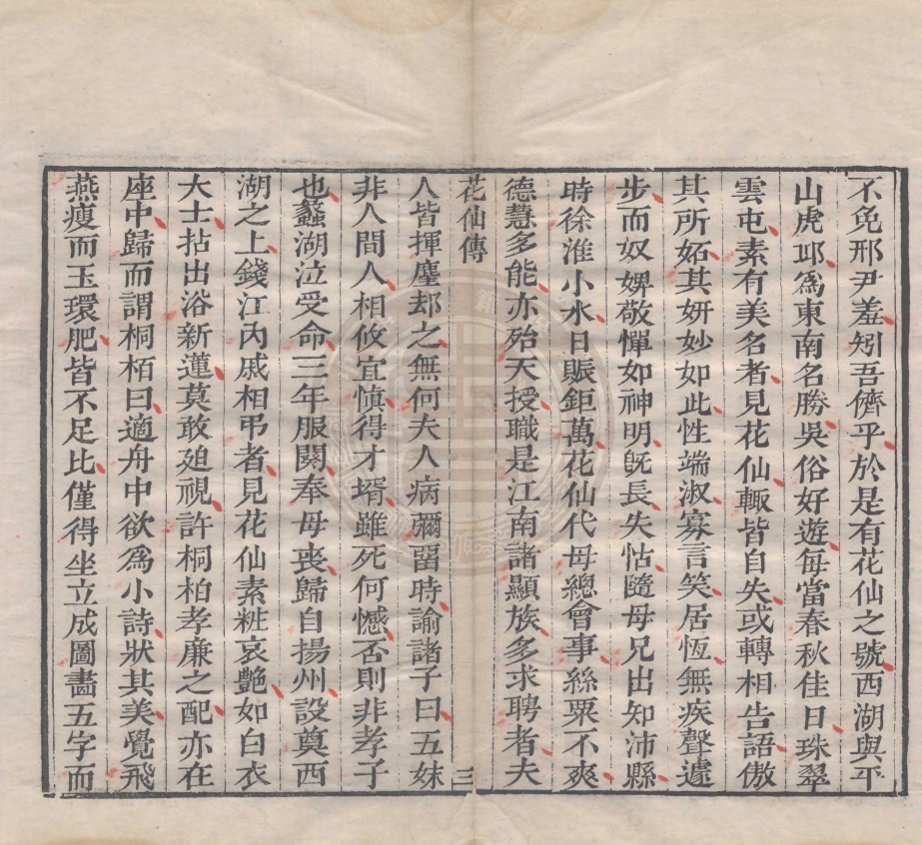 不免邢尹羞矧吾儕乎於是有花仙之號西湖與平
山虎邱爲東南名勝吳俗好遊每當春秋佳日珠翠
雲屯素有美名者見花仙輒皆自失或轉相告語傲
其所妬其妍妙如此性端淑寡言笑居恆無疾聲遽
步而奴婢敬憚如神明旣長失怙隨母兄出知沛縣
時徐淮小水日賑鉅萬花仙代母總會事絲粟不爽
德慧多能亦殆天授職是江南諸顯族多求聘者夫
花仙傳 三
人皆揮麈却之無何夫人病彌畱時諭諸子曰五妹
非人間人相攸宜愼得才壻雖死何憾否則非孝子
也蠡湖泣受命三年服闋奉母喪歸自揚州設奠西
湖之上錢江內戚相弔者見花仙素粧哀艶如白衣
大士拈出浴新蓮莫敢廹視許桐柏孝廉之配亦在
座中歸而謂桐栢曰適舟中欲爲小詩狀其美覺飛
燕瘦而玉環肥皆不足比僅得坐立成圖畵五字而